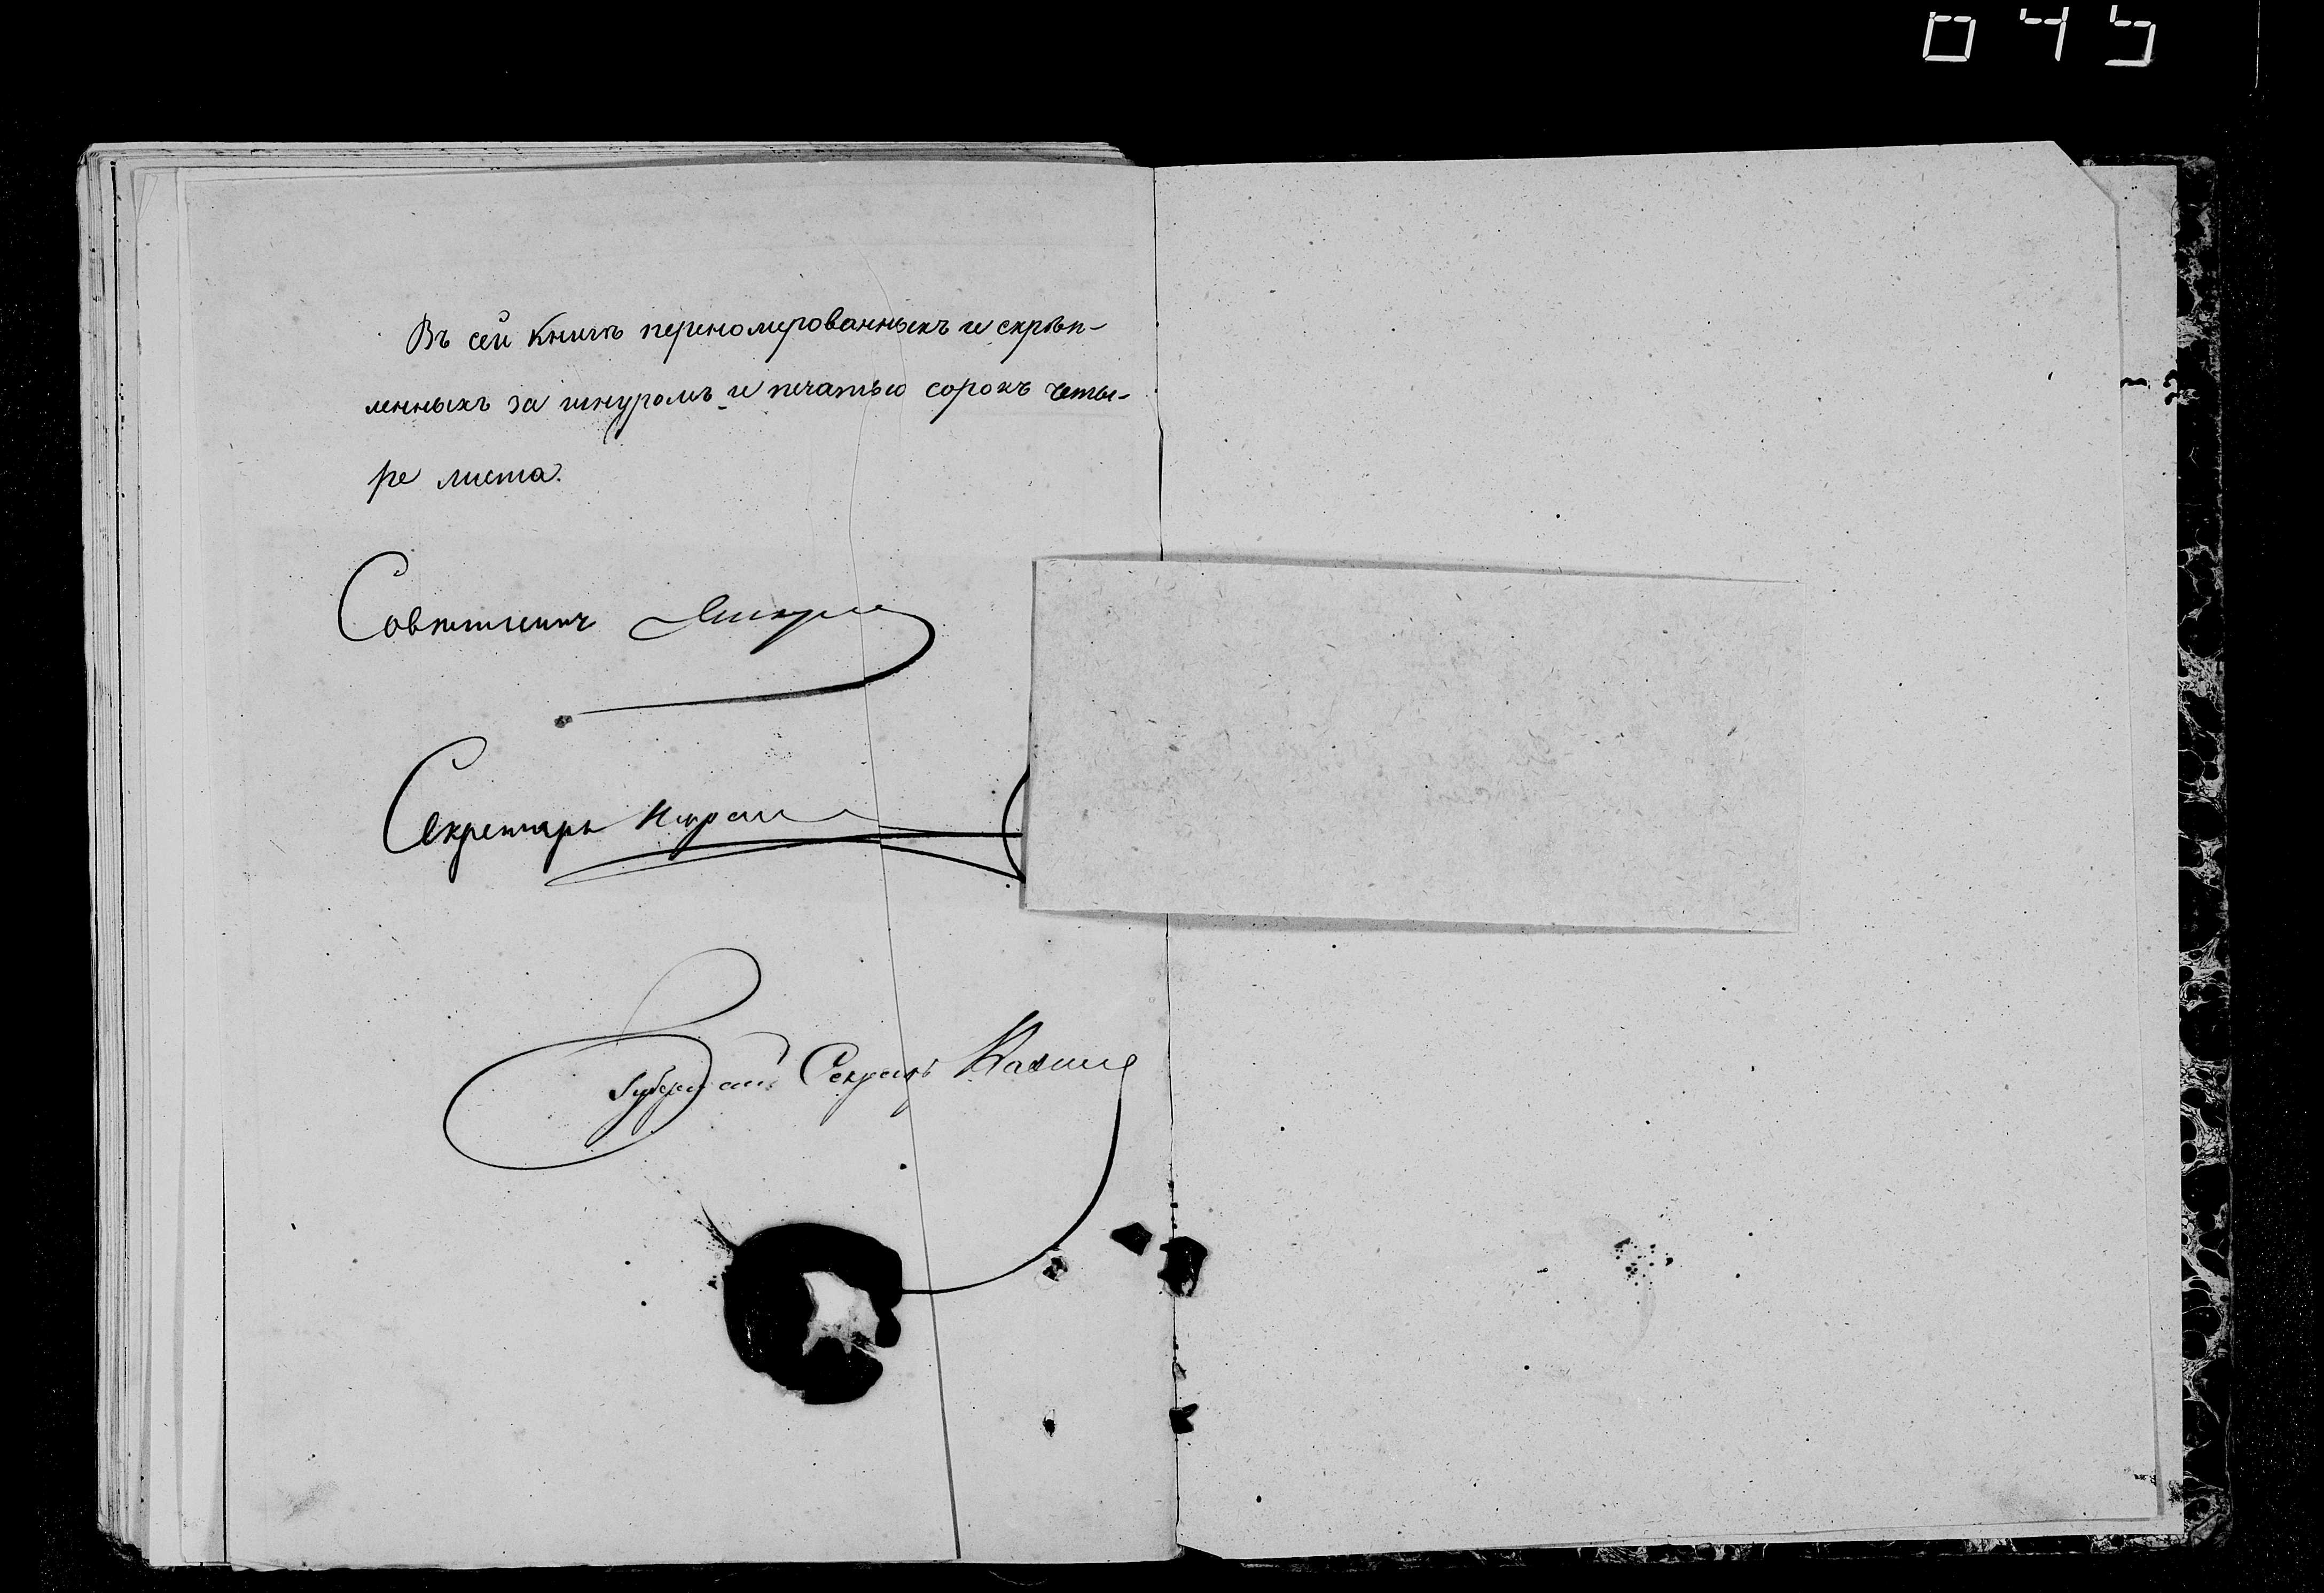 045
Въ сей книгѣ перемомерованныхъ и скрѣп-
ленныхъ за шнуромъ и печатью сорокъ четы-
ре листа.
Совѣтникъ
Секретарь
Губернскій Секретарь